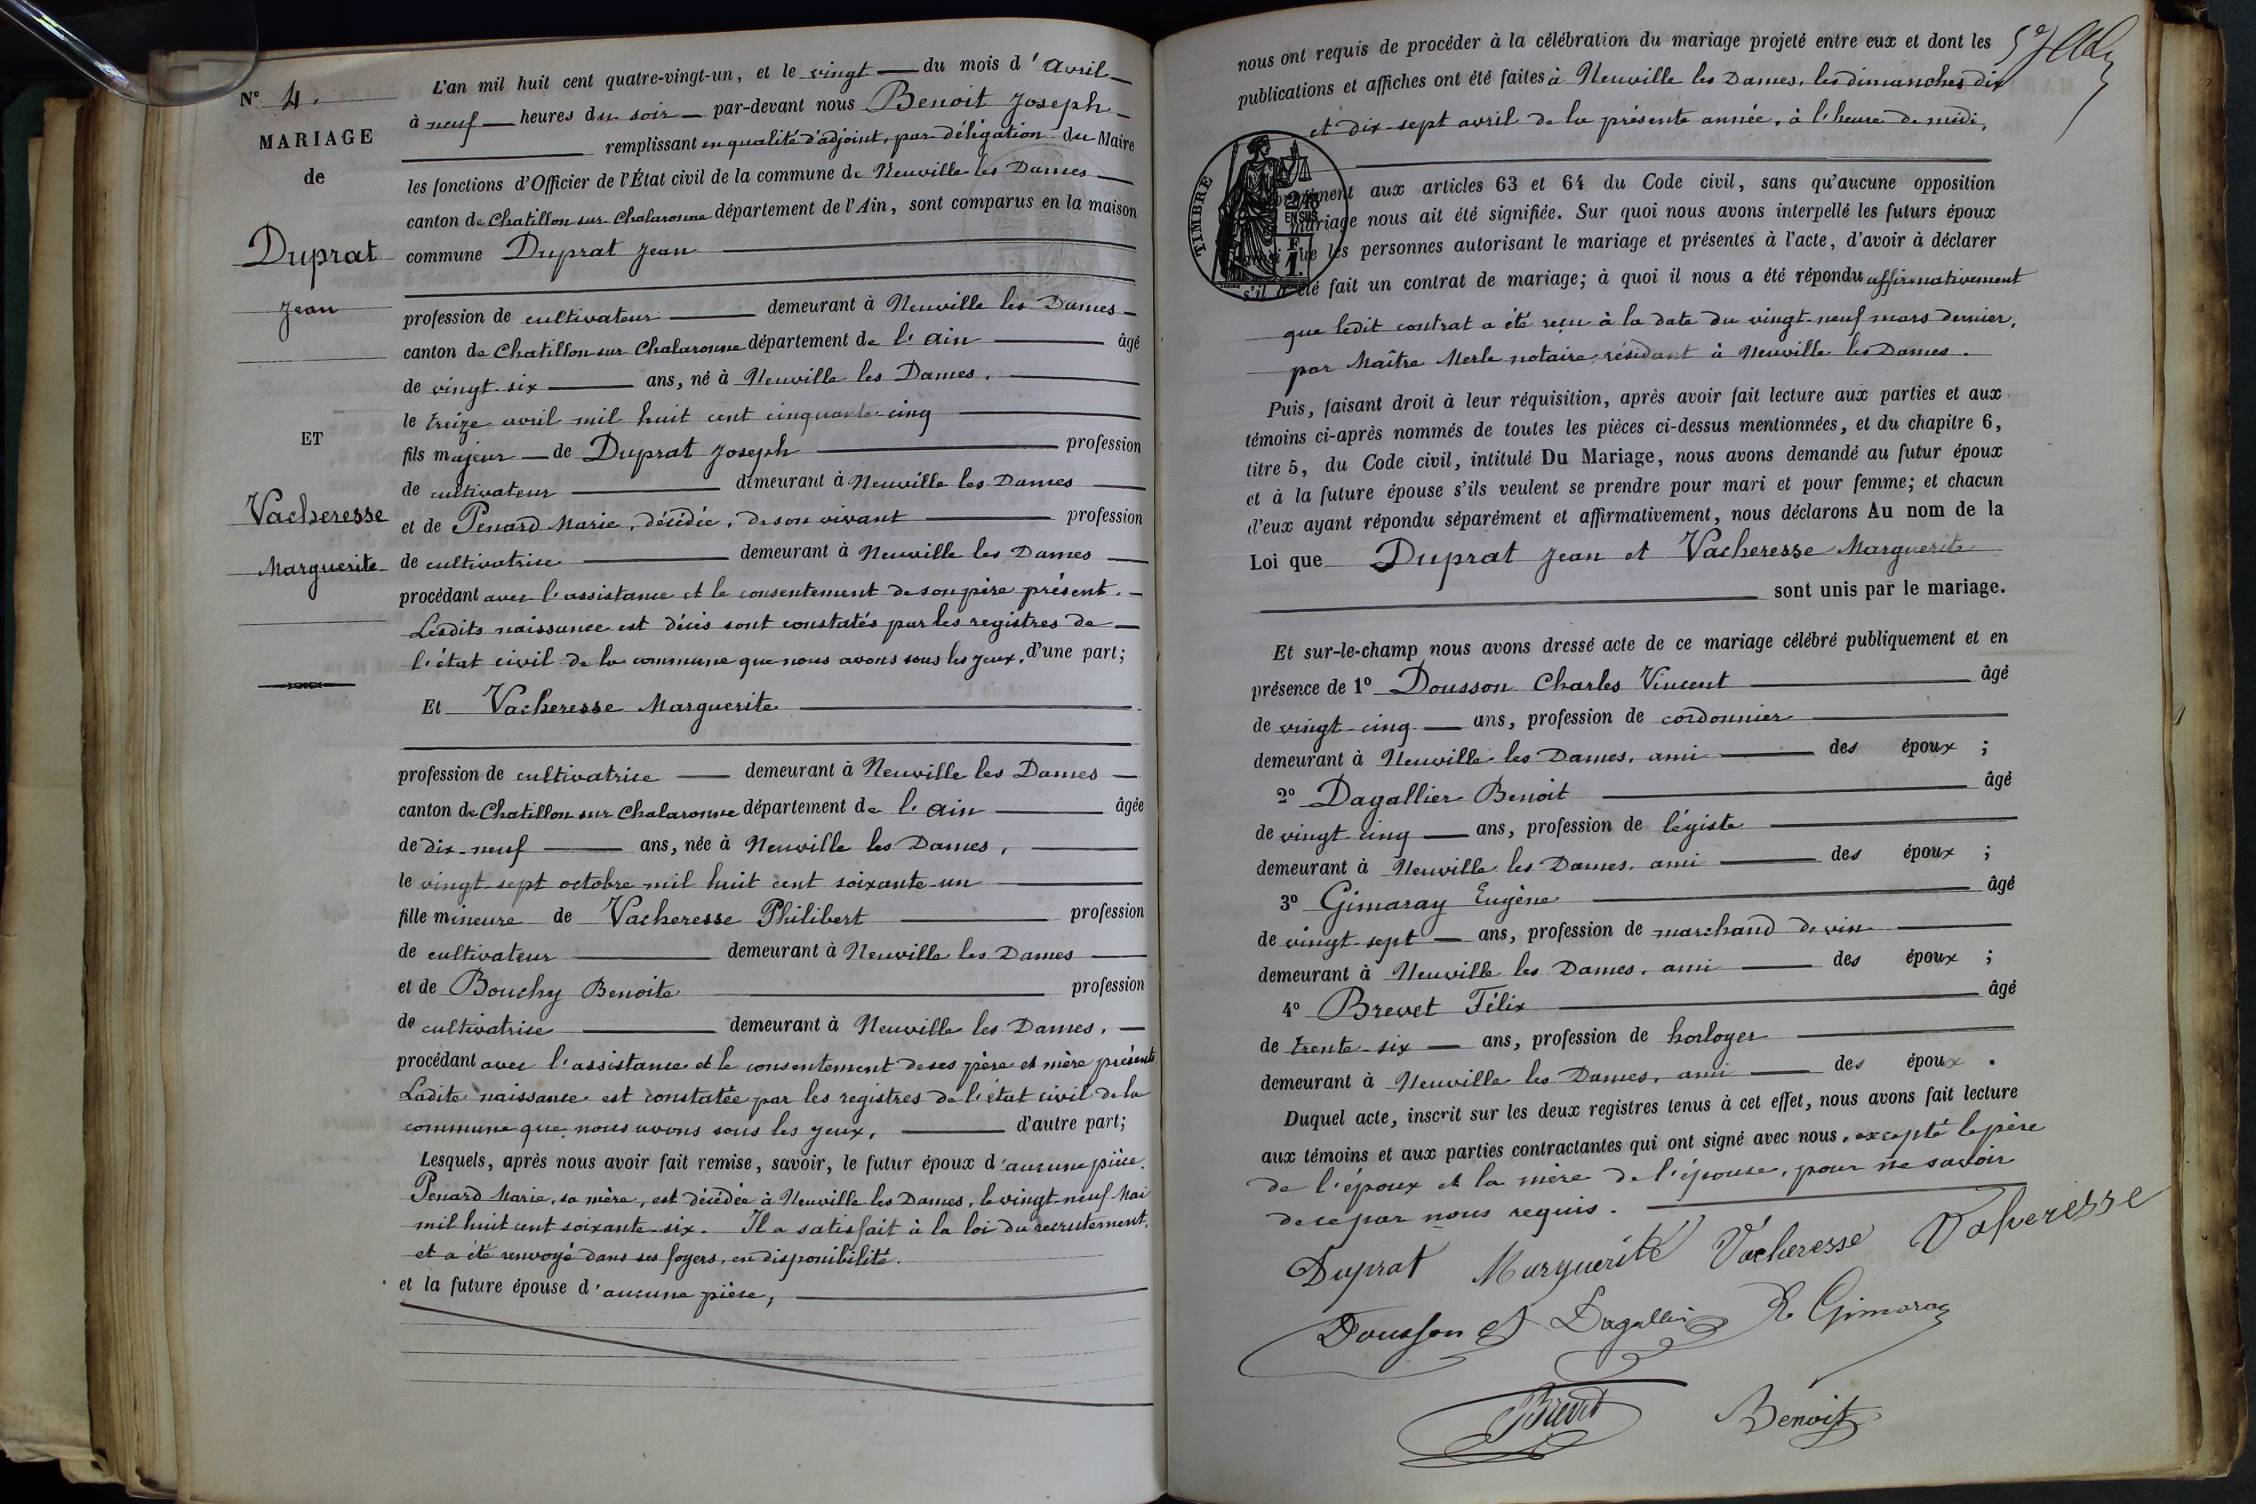 N° 4.
MARIAGE
de
Duprat
Jean
ET
Vacheresse
Marguerite
L'an mil huit cent quatre-vingt-un, et le vingt du mois d'avril
à neuf heures du soir par-devant nous Benoit Joseph
remplissant en qualité d'adjoint, par déligation du Maire
les fonctions d'Officier de l'État civil de la commune de Neuville les Dames
canton de Chatillon sur Chalaronne département de l'Ain, sont comparus en la maison
commune Duprat Jean
profession de cultivateur demeurant à Neuville les Dames
canton de Chatillon sur Chalaronne département de l'Ain âgé
de vingt-six ans, né à Neuville les Dames,
le treize avril mil huit cent cinquante-cinq
fils majeur de Duprat Joseph profession
de cultivateur demeurant à Neuville les Dames
et de Penard Marie, décédée, de son vivant profession
de cultivatrice demeurant à Neuville les Dames
procédant avec l'assistance et le consentement de son père présent.
Lesdits naissance est décès sont constatés par les registres de
l'état civil de la commune que nous avons sous les yeux, d'une part;
Et Vacheresse Marguerite
profession de cultivatrice demeurant à Neuville les Dames
canton de Chatillon sur Chalaronne département de l'Ain âgée
de dix-neuf ans, née à Neuville les Dames,
le vingt-sept octobre mil huit cent soixante-un
fille mineure de Vacheresse Philibert profession
de cultivateur demeurant à Neuville les Dames
et de Bouchy Benoite profession
de cultivatrice demeurant à Neuville les Dames,
procédant avec l'assistance et le consentement de ses père et mère présents
Ladite naissance est constatée par les registres de l'état civil de la
commune que nous avons sous les yeux, d'autre part;
Lesquels, après nous avoir fait remise, savoir, le futur époux d'aucune pièce.
Penard Marie, sa mère, est décédée à Neuville les Dames, le vingt-neuf Mai
mil huit cent soixante-six. Il a satisfait à la loi du recrutement,
et a été renvoyé dans ses foyers, en disponibilité.
et la future épouse d'aucune pièce,
nous ont requis de procéder à la célébration du mariage projeté entre eux et dont les
publications et affiches ont été faites à Neuville les Dames, les dimanches dix
et dix-sept avril de la présente année, à l'heure de midi,
TIMBRE
2/10
EN SUS
F
1.
aux articles 63 et 64 du Code civil, sans qu'aucune opposition
mariage nous ait été signifiée. Sur quoi nous avons interpellé les futurs époux
que les personnes autorisant le mariage et présentes à l'acte, d'avoir à déclarer
s'il a été fait un contrat de mariage; à quoi il nous a été répondu affirmativement
que ledit contrat a été reçu à la date du vingt-neuf mars dernier,
par Maître Merle notaire résidant à Neuville les Dames.
Puis, faisant droit à leur réquisition, après avoir fait lecture aux parties et aux
témoins ci-après nommés de toutes les pièces ci-dessus mentionnées, et du chapitre 6,
titre 5, du Code civil, intitulé Du Mariage, nous avons demandé au futur époux
et à la future épouse s'ils veulent se prendre pour mari et pour femme; et chacun
d'eux ayant répondu séparément et affirmativement, nous déclarons Au nom de la
Loi que Duprat Jean et Vacheresse Marguerite
sont unis par le mariage.
Et sur-le-champ nous avons dressé acte de ce mariage célébré publiquement et en
présence de 1° Dousson Charles Vincent âgé
de vingt-cinq ans, profession de cordonnier
demeurant à Neuville les Dames, ami des époux ;
2° Dagallier Benoit âgé
de vingt-cinq ans, profession de légiste
demeurant à Neuville les Dames, ami des époux ;
3° Gimaray Eugène âgé
de vingt-sept ans, profession de marchand de vin
demeurant à Neuville les Dames, ami des époux ;
4° Brevet Félix âgé
de trente-six ans, profession de horloger
demeurant à Neuville les Dames, ami des époux .
Duquel acte, inscrit sur les deux registres tenus à cet effet, nous avons fait lecture
aux témoins et aux parties contractantes qui ont signé avec nous, excepté le père
de l'époux et la mère de l'épouse, pour ne savoir
de ce par nous requis.
Duprat Marguerite Vacheresse Vacheresse
Dousson Dagallier E. Gimaray
Brevet Benoit